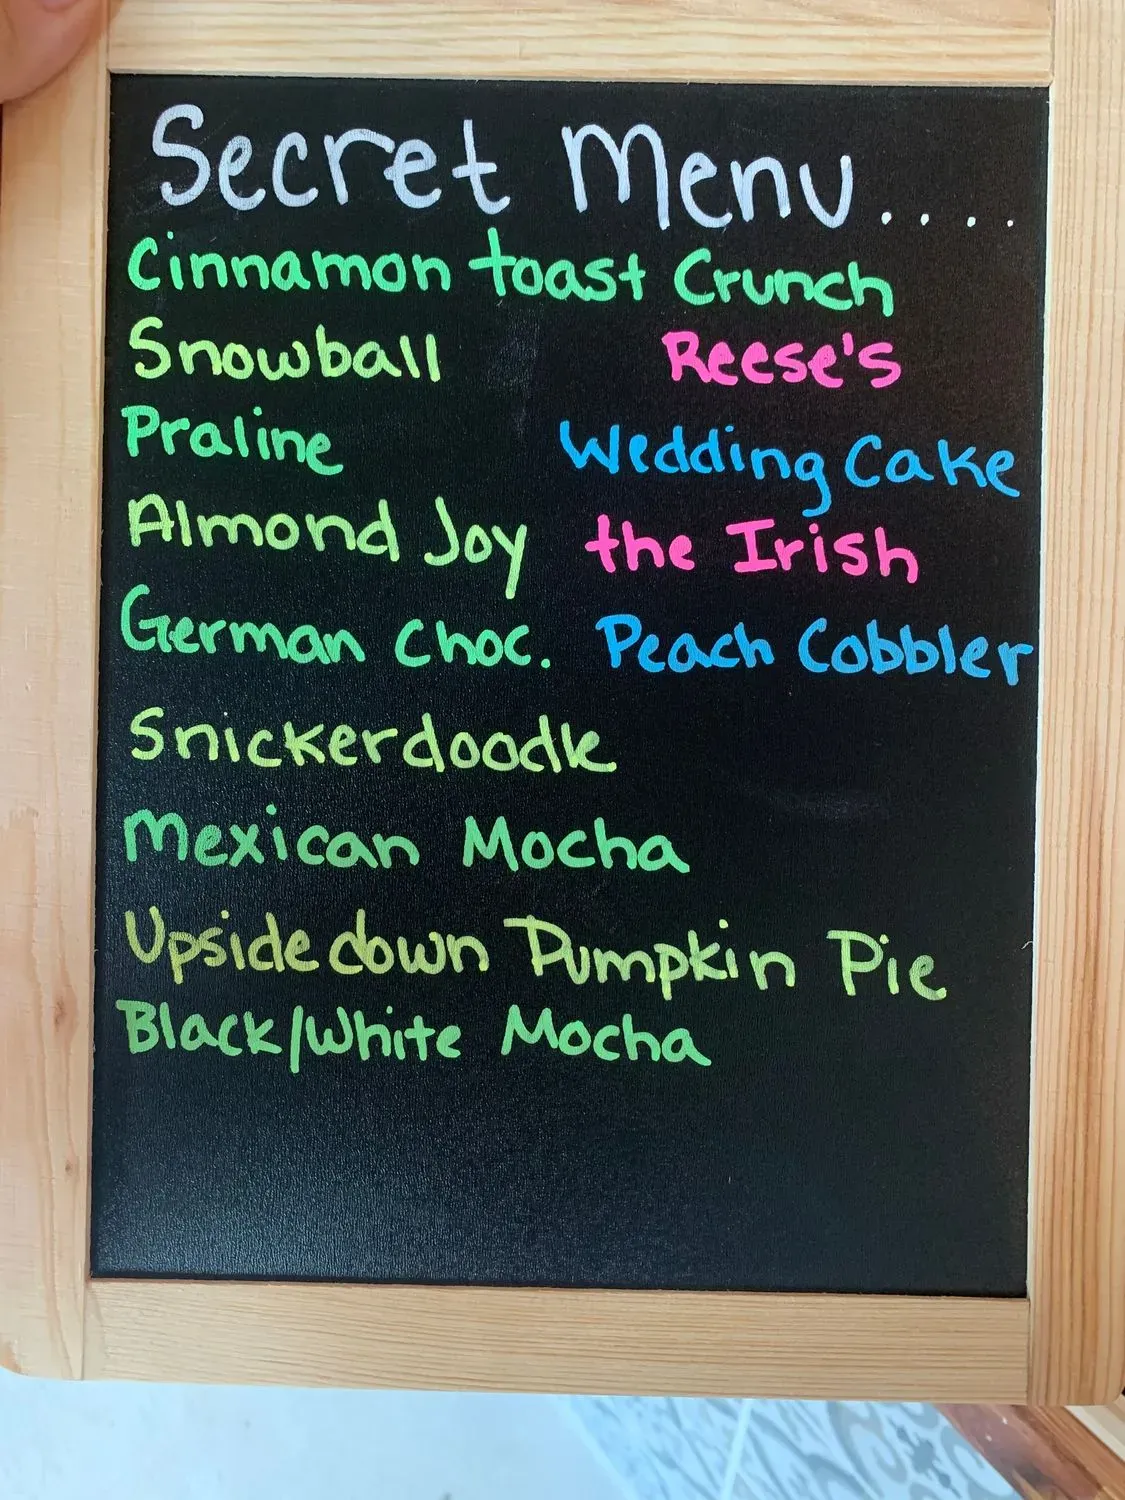 Secret Menu....
Cinnamon toast Crunch
Snowball
Reese's
Praline
Wedding Cake
Almond Joy
the Irish
German Choc.
Peach Cobbler
Snickerdoodle
Mexican Mocha
Upside down Pumpkin Pie
Black/White Mocha